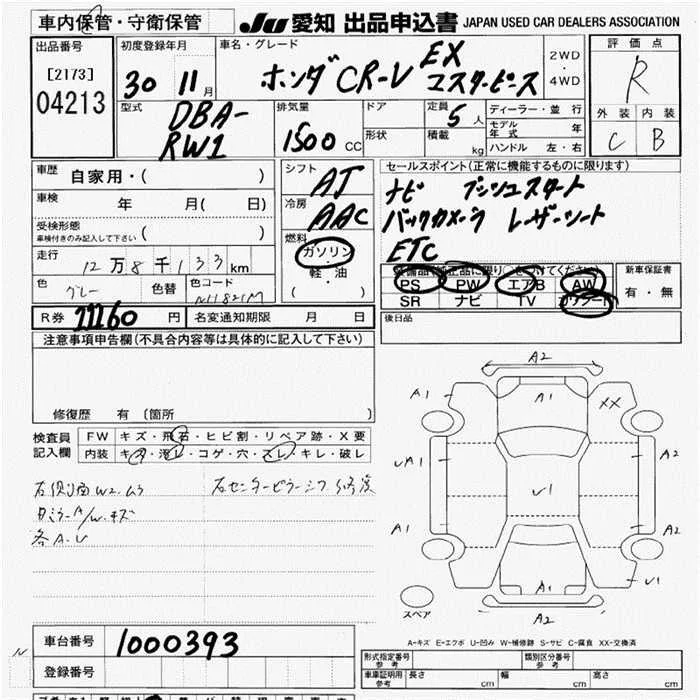 車内保管・守衛保管
JU 愛知 出品申込書 JAPAN USED CAR DEALERS ASSOCIATION
出品番号
[2173]
04213
初度登録年月
30 11 月
車名・グレード
ホンダ CR-V EX マスターピース
2WD
4WD
評価点
R
外装 内装
C B
型式
DBA-
RW1
排気量
1500 CC
ドア
形状
定員
5 人
積載
kg
ディーラー・並行
モデル年式 年
ハンドル 左・右
車歴
自家用・( )
車検
年 月( 日)
受検形態
車検付きのみ記入して下さい ( )
走行
12万8千133km
色
グレー
色替
色コード NH821M
シフト
AT
冷房
AAC
燃料
ガソリン
軽・油
( )
セールスポイント(正常に機能するものに限ります)
ナビ プッシュスタート
バックカメラ レザーシート
ETC
装備品(純正品に限り○をつけてください)
PS PW エアB AW
SR ナビ TV
新車保証書
有・無
後日品
R券 11160 円
名変通知期限 月 日
注意事項申告欄(不具合内容等は具体的に記入して下さい)
修復歴 有 〔箇所 〕
検査員
記入欄
FW キズ・飛石・ヒビ割・リペア跡・X要
内装 キズ・汚レ・コゲ・穴・スレ・キレ・破レ
右センターピラーインナ修復
各A.U
A2
A1
A1
XX
A2
A1
A2
A1
V1
A1
A2
スペア
A-キズ E-エクボ U-凹み W-補修跡 S-サビ C-腐食 XX-交換済
車台番号
1000393
登録番号
型式指定番号
参考
類別区分番号
参考
車庫証明用
参考
長さ cm
幅 cm
高さ cm